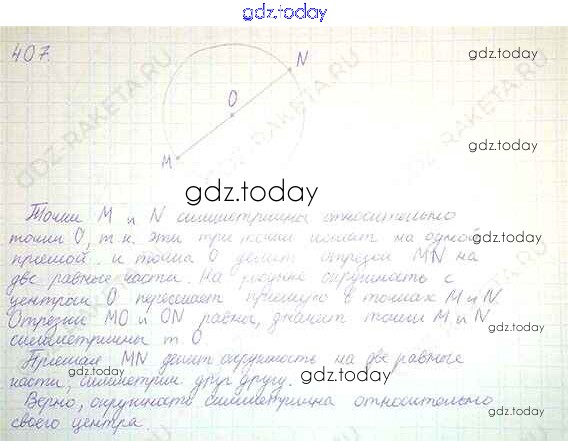 gdz.today
407.
gdz.today
N
O
gdz.today
M
gdz.today
Точки M и N симметричны относительно
точки O, т.к. эти три точки лежат на одной
прямой и точка O делит отрезок MN на
две равные части. На рисунке окружность с
gdz.today
центром O пересекает прямую в точках M и N.
Отрезки MO и ON равны, значит точки M и N
симметричны т. O
gdz.today
Прямая MN делит окружность на две равные
части, симметрич. друг другу.
gdz.today
Верно, окружность симметрична относительно
своего центра.
gdz.today
GDZ-RAKETA.RU